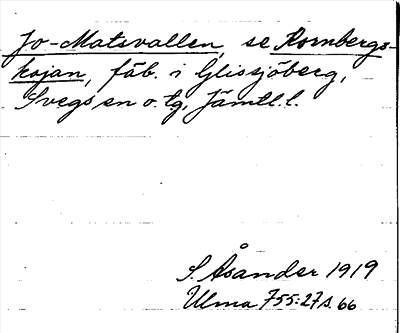 Jo-Matsvallen, se Rombergs-
kojan, fäb. i Glissjöberg,
Svegs sn o. tg, Jämtl. l.
S. Åsander 1919
Ulma 755:27 s. 66